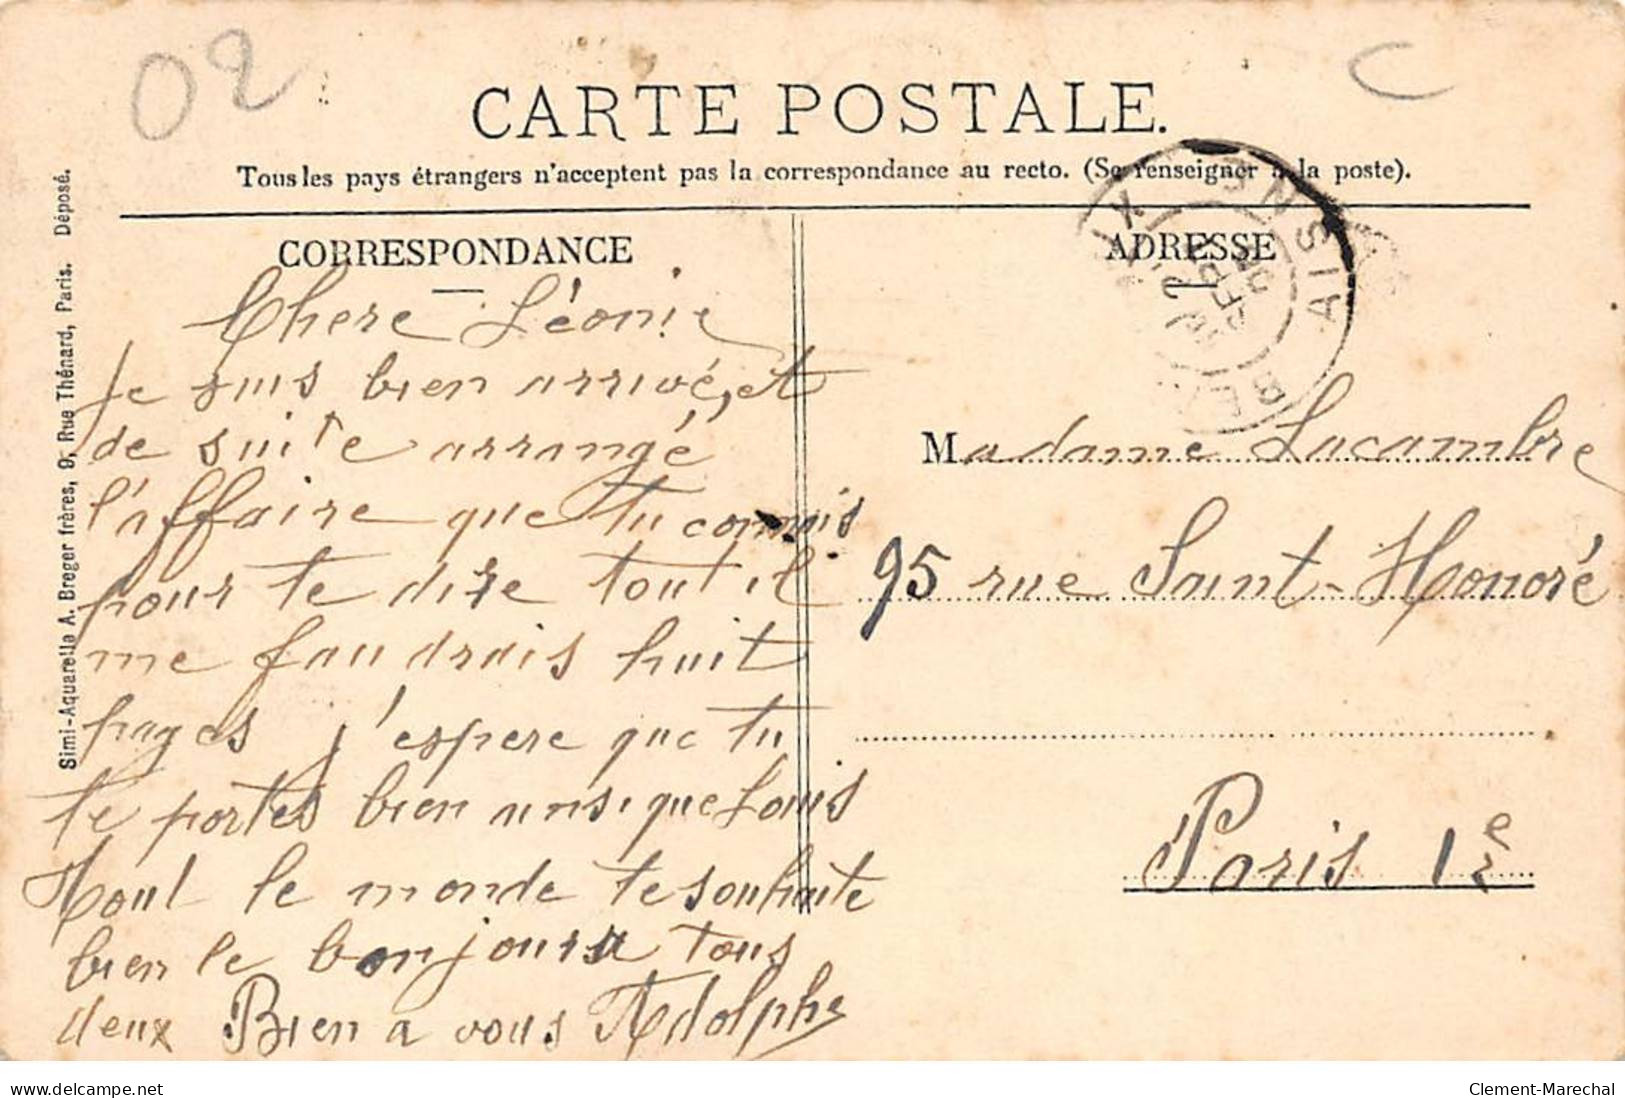 02
C
CARTE POSTALE.
Tous les pays étrangers n'acceptent pas la correspondance au recto. (Se renseigner à la poste).
Simi-Aquarelle A. Breger frères, 9, Rue Thénard, Paris. Déposé.
CORRESPONDANCE
Chere Léonie
Je suis bien arrivé, et
de suite arrangé
l'affaire que tu connais
pour te dire tout il
me faudrais huit
pages j'espere que tu
te portes bien ainsi que Louis
Tout le monde te souhaite
bien le bonjour a tous
deux Bien a vous Adolphe
ADRESSE
AISNE
Madame Lacambre
95 rue Saint-Honoré
Paris 1er
www.delcampe.net
Clement-Marechal